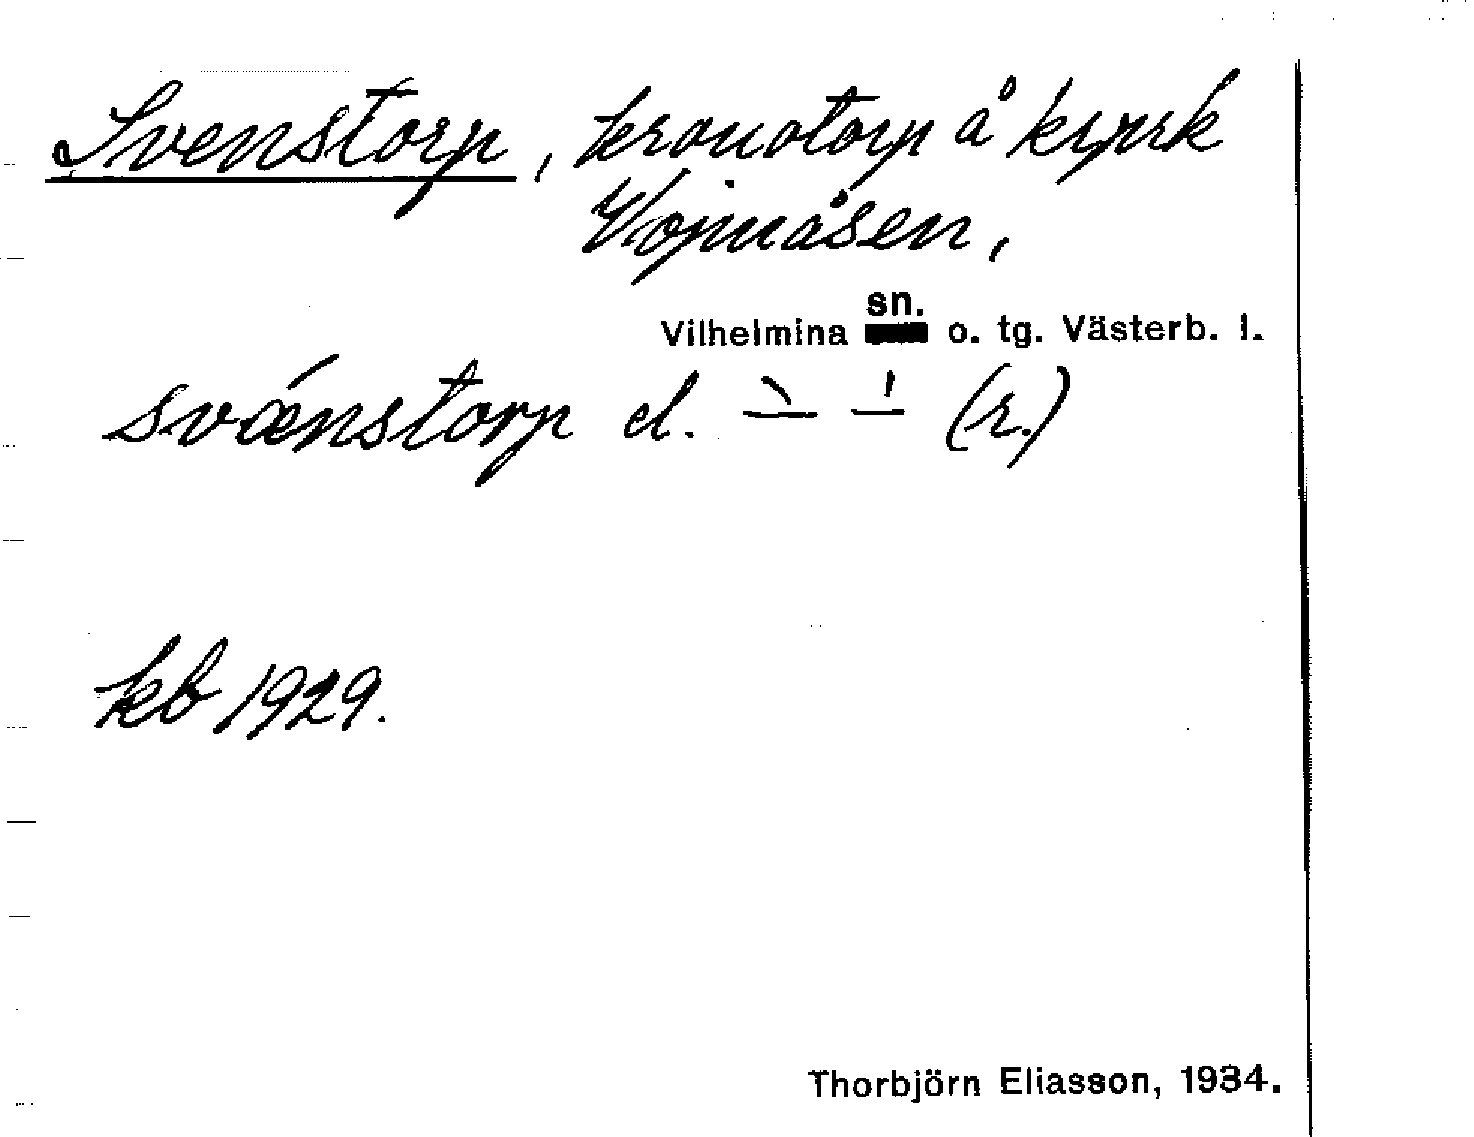 Svenstorp, kronotorp å kyrk
Vojmåsen,
sn.
Vilhelmina o. tg. Västerb. l.
svǽnstorp el. (r.)
kb 1929.
Thorbjörn Eliasson, 1934.